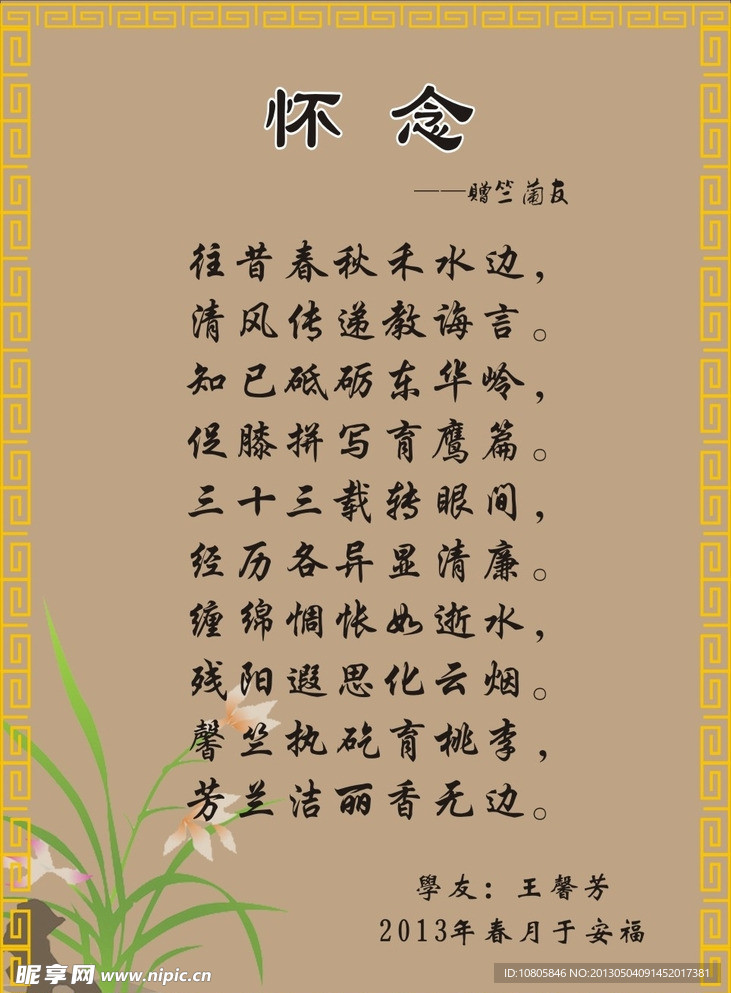 怀念
——赠竺蘭友
往昔春秋禾水边，
清风传递教诲言。
知已砥砺东华岭，
促膝拼写育鹰篇。
三十三载转眼间，
经历各异显清廉。
缠绵惆怅如逝水，
残阳遐思化云烟。
馨竺执矻育桃李，
芳兰洁丽香无边。
學友：王馨芳
2013年春月于安福
昵享网 www.nipic.cn
ID:10805846 NO:20130504091452017381